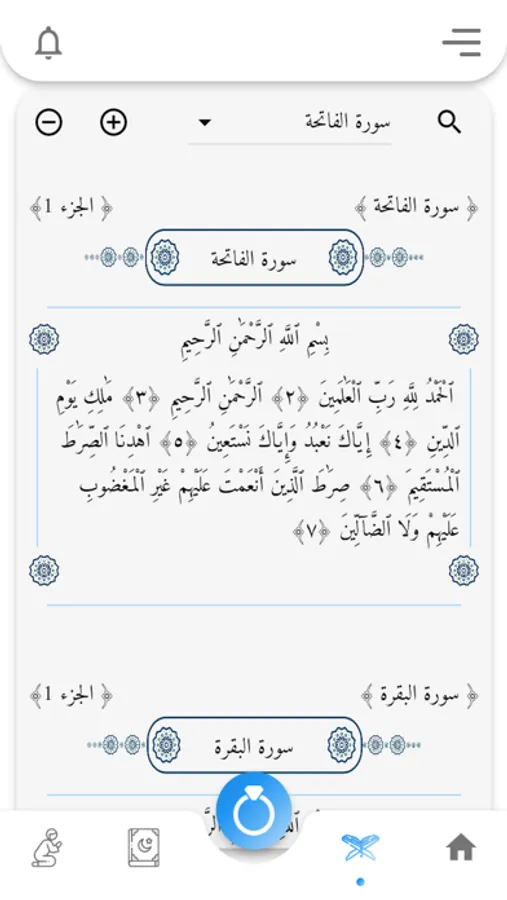 سورة الفاتحة
﴿ سورة الفاتحة ﴾ ﴿ الجزء 1﴾
سورة الفاتحة
بِسْمِ ٱللَّهِ ٱلرَّحْمَٰنِ ٱلرَّحِيمِ
ٱلْحَمْدُ لِلَّهِ رَبِّ ٱلْعَٰلَمِينَ ﴿٢﴾ ٱلرَّحْمَٰنِ ٱلرَّحِيمِ ﴿٣﴾ مَٰلِكِ يَوْمِ
ٱلدِّينِ ﴿٤﴾ إِيَّاكَ نَعْبُدُ وَإِيَّاكَ نَسْتَعِينُ ﴿٥﴾ ٱهْدِنَا ٱلصِّرَٰطَ
ٱلْمُسْتَقِيمَ ﴿٦﴾ صِرَٰطَ ٱلَّذِينَ أَنْعَمْتَ عَلَيْهِمْ غَيْرِ ٱلْمَغْضُوبِ
عَلَيْهِمْ وَلَا ٱلضَّآلِّينَ ﴿٧﴾
﴿ سورة البقرة ﴾ ﴿ الجزء 1﴾
سورة البقرة